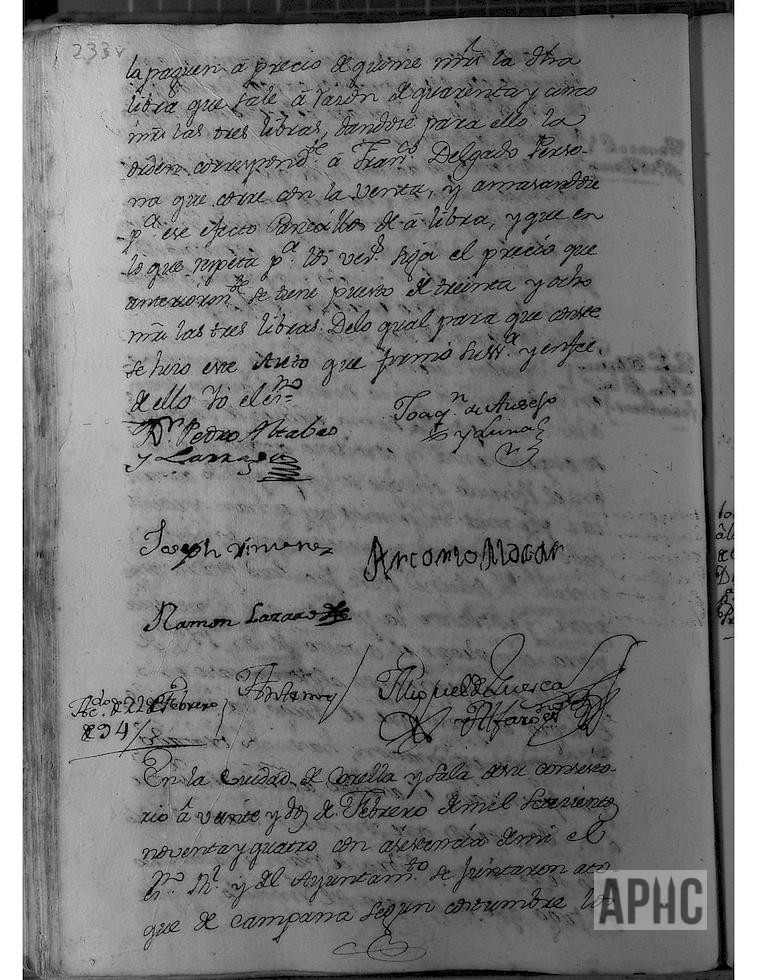 233v
la paguen â precio de quince mrs la dha
libra que sale â razon de quarenta y cinco
mrs las tres libras, dandose para ello la
orden correspondte. â Franco. Delgado Perso-
na que corre con la venta, y amasandose
pa. ese efecto de â libra, y que en
lo que respeta pa. los vezs. sija el precio que
anteriormte. se tiene puesto de treinta y ocho
mrs las tres libras. Delo qual para que conste
se hizo este Auto que firmó Su Sa. y enfee
de ello Yo el no
Dn. Pedro Altabeo
y Larra
Joaqn. de Aurefo
y Luna
Joseph Ximenez
Antonio Macar
Ramon Lazaro
Antemy
Miguel de Luesca
y Alfaro
Acdo. de 22 de Febrero
de 94
En la Ciudad de Corella y Sala desu consisto-
rio â veinte y dos de Febrero demil setecientos
noventa y quatro con asestencia demi el
no. Rl. y del Ayuntamto. se juntaron ato-
que de campana segun costumbre los
APHC